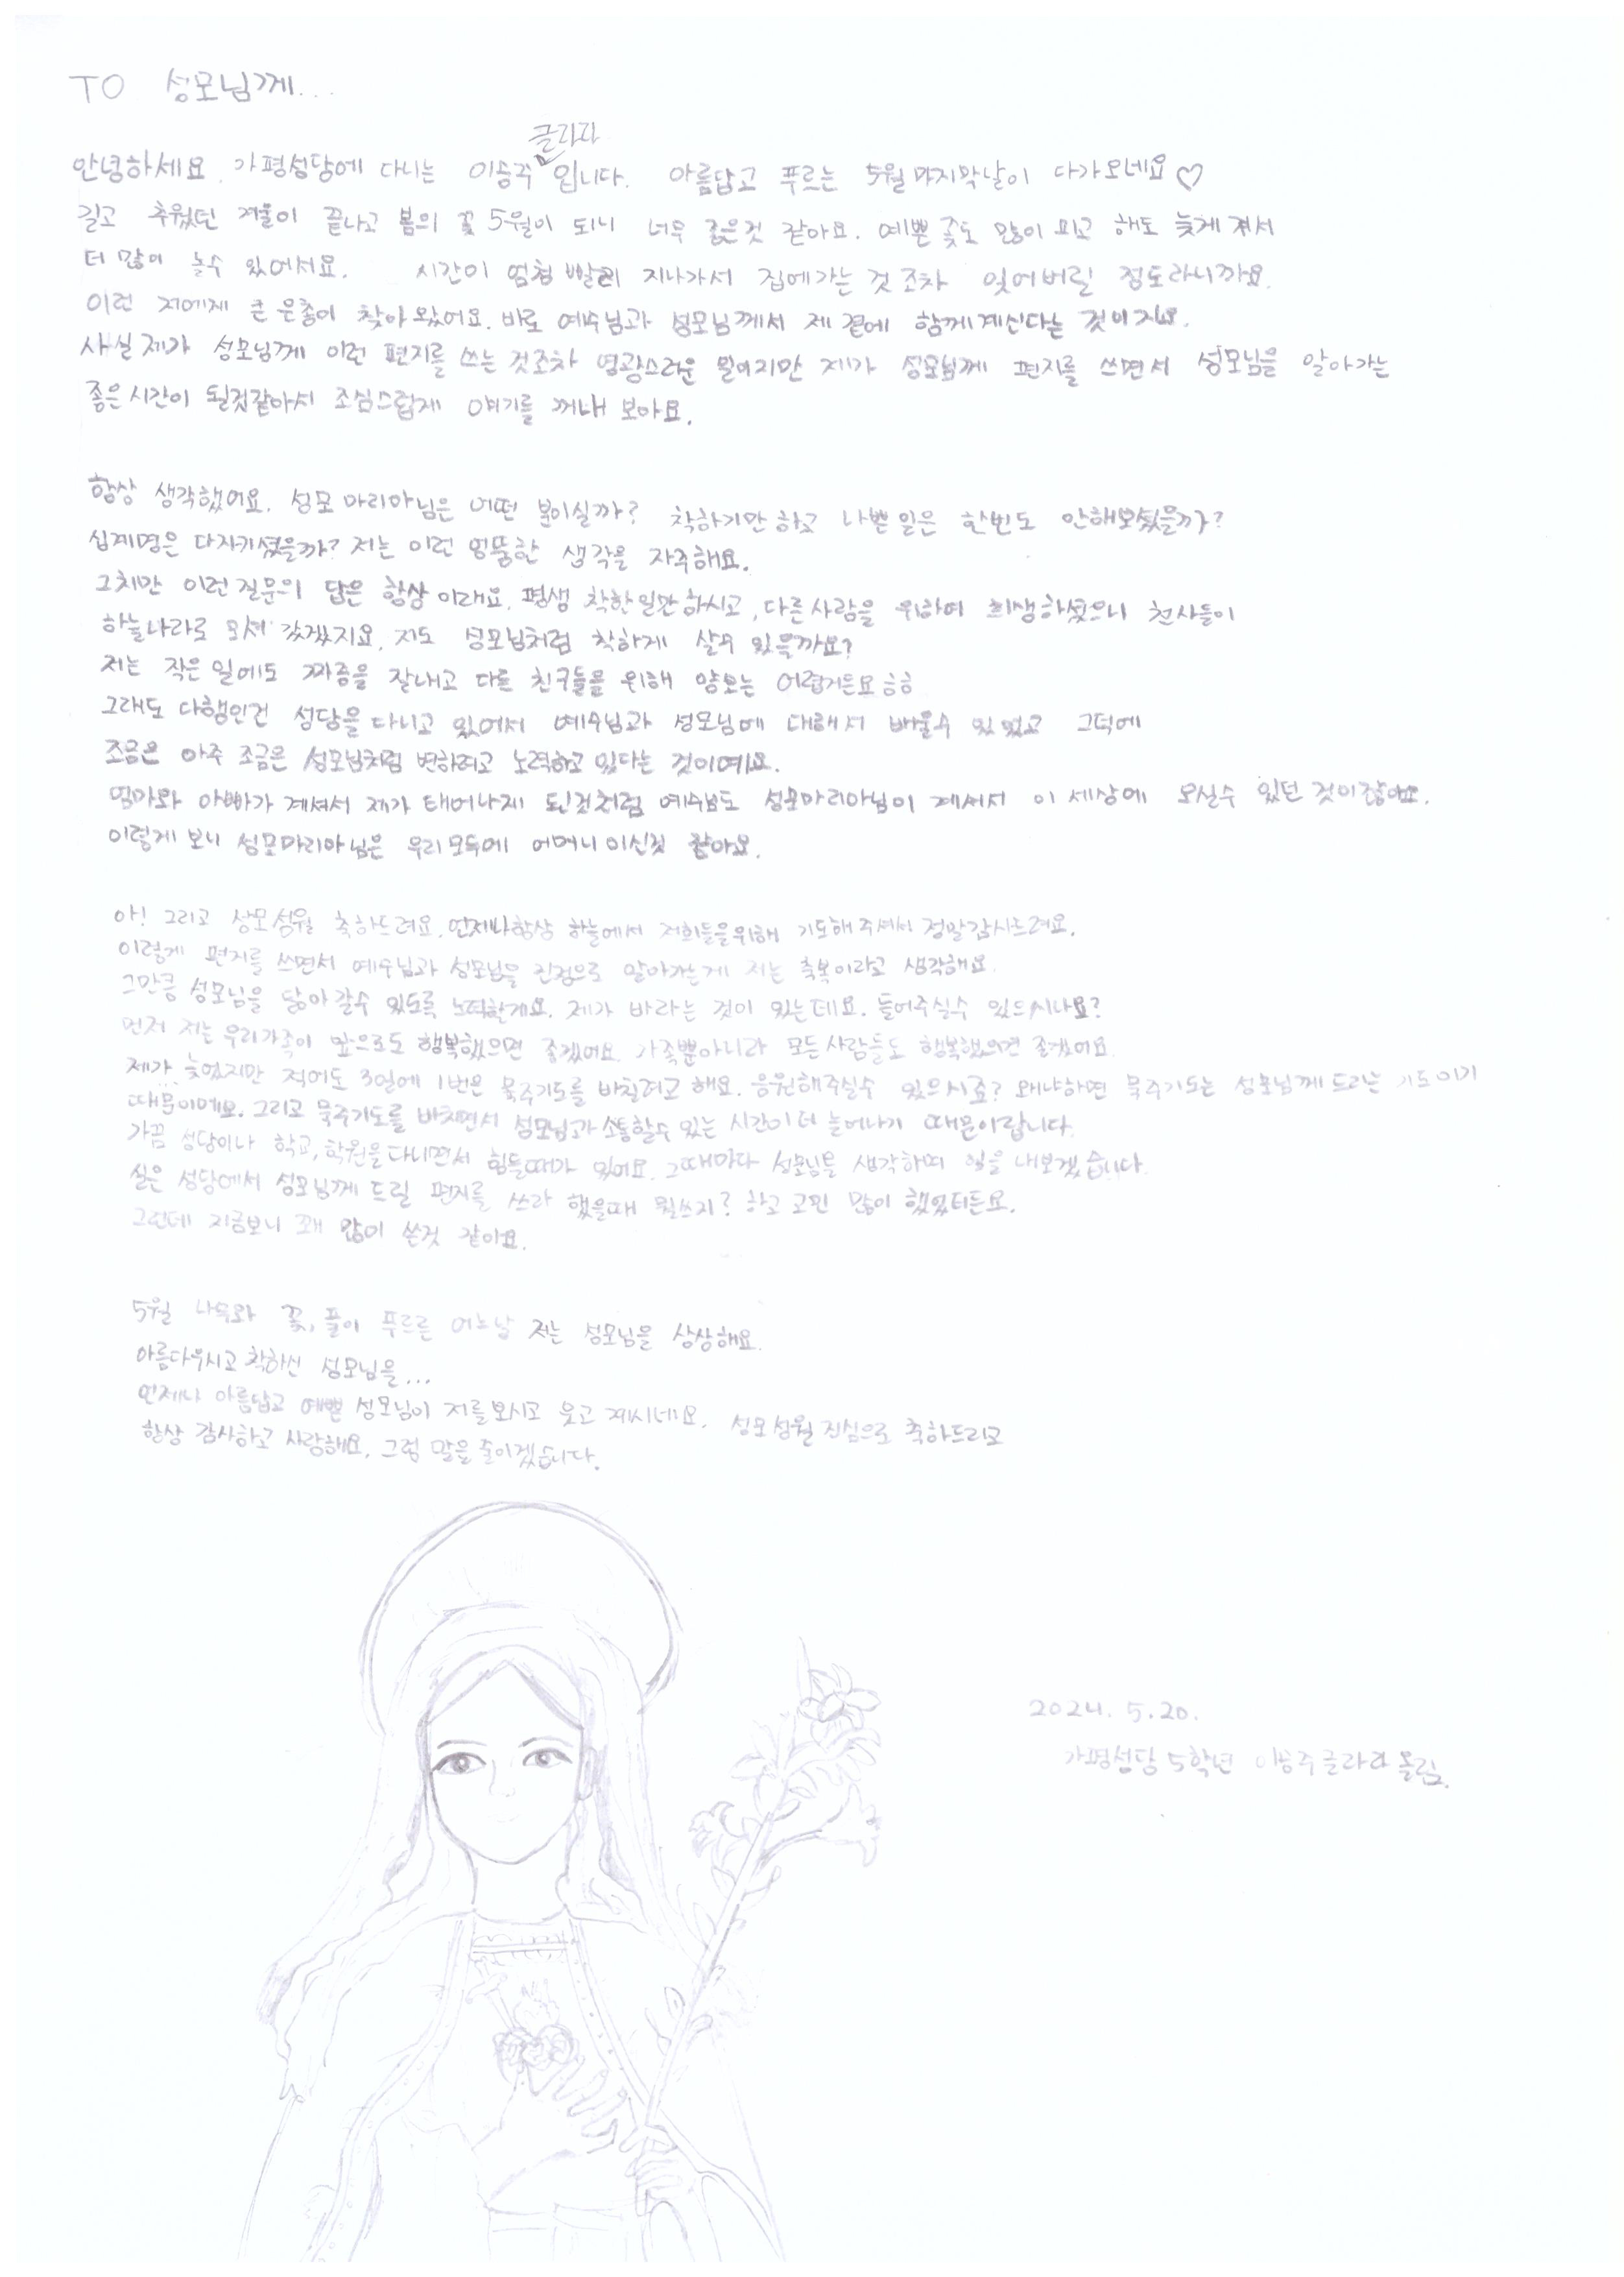 TO 성모님께...
글라라
안녕하세요. 가평성당에 다니는 이승주 입니다. 아름답고 푸르는 5월 마지막날이 다가오네요♡
길고 추웠던 겨울이 끝나고 봄의 꽃 5월이 되니 너무 좋은것 같아요. 예쁜 꽃도 많이 피고 해도 늦게 져서
더 많이 놀수 있어서요. 시간이 엄청 빨리 지나가서 집에가는 것 조차 잊어버릴 정도라니까요.
이런 저에게 큰 은총이 찾아 왔어요. 바로 예수님과 성모님께서 제 곁에 함께 계신다는 것이지요.
사실 제가 성모님께 이런 편지를 쓰는 것조차 영광스러운 일이지만 제가 성모님께 편지를 쓰면서 성모님을 알아가는
좋은 시간이 될것같아서 조심스럽게 얘기를 꺼내 보아요.
항상 생각했어요. 성모 마리아님은 어떤 분이실까? 착하기만 하고 나쁜 일은 한번도 안해보셨을까?
십계명은 다지키셨을까? 저는 이런 엉뚱한 생각을 자주해요.
그치만 이런 질문의 답은 항상 이래요. 평생 착한일만 하시고, 다른 사람을 위하여 희생하셨으니 천사들이
하늘나라로 모셔 갔겠지요. 저도 성모님처럼 착하게 살수 있을까요?
저는 작은 일에도 짜증을 잘내고 다른 친구들을 위해 양보는 어렵거든요 ㅎㅎ
그래도 다행인건 성당을 다니고 있어서 예수님과 성모님에 대해서 배울수 있었고 그덕에
조금은 아주 조금은 성모님처럼 변하려고 노력하고 있다는 것이예요.
엄마와 아빠가 계셔서 제가 태어나게 된것처럼 예수님도 성모마리아님이 계셔서 이 세상에 오실수 있던 것이잖아요.
이렇게 보니 성모마리아님은 우리 모두에 어머니 이신것 같아요.
아! 그리고 성모성월 축하드려요. 언제나 항상 하늘에서 저희들을위해 기도해 주셔서 정말감사드려요.
이렇게 편지를 쓰면서 예수님과 성모님을 진정으로 알아가는게 저는 축복이라고 생각해요.
그만큼 성모님을 닮아 갈수 있도록 노력할게요. 제가 바라는 것이 있는데요. 들어주실수 있으시나요?
먼저 저는 우리가족이 앞으로도 행복했으면 좋겠어요. 가족뿐아니라 모든 사람들도 행복했으면 좋겠어요.
제가 늦었지만 적어도 3일에 1번은 묵주기도를 바칠려고 해요. 응원해주실수 있으시죠? 왜냐하면 묵주기도는 성모님께 드리는 기도이기
때문이에요. 그리고 묵주기도를 바치면서 성모님과 소통할수 있는 시간이 더 늘어나기 때문이랍니다.
가끔 성당이나 학교, 학원을 다니면서 힘들때가 있어요. 그때마다 성모님을 생각하며 힘을 내보겠습니다.
실은 성당에서 성모님께 드릴 편지를 쓰라 했을때 뭘쓰지? 하고 고민 많이 했었더든요.
그런데 지금보니 꽤 많이 쓴것 같아요.
5월 나무와 꽃, 풀이 푸르른 어느날 저는 성모님을 상상해요.
아름다우시고 착하신 성모님을...
언제나 아름답고 예쁜 성모님이 저를보시고 웃고 계시네요. 성모성월 진심으로 축하드리고
항상 감사하고 사랑해요. 그럼 말을 줄이겠습니다.
2024. 5.20.
가평성당 5학년 이승주 글라라 올림.